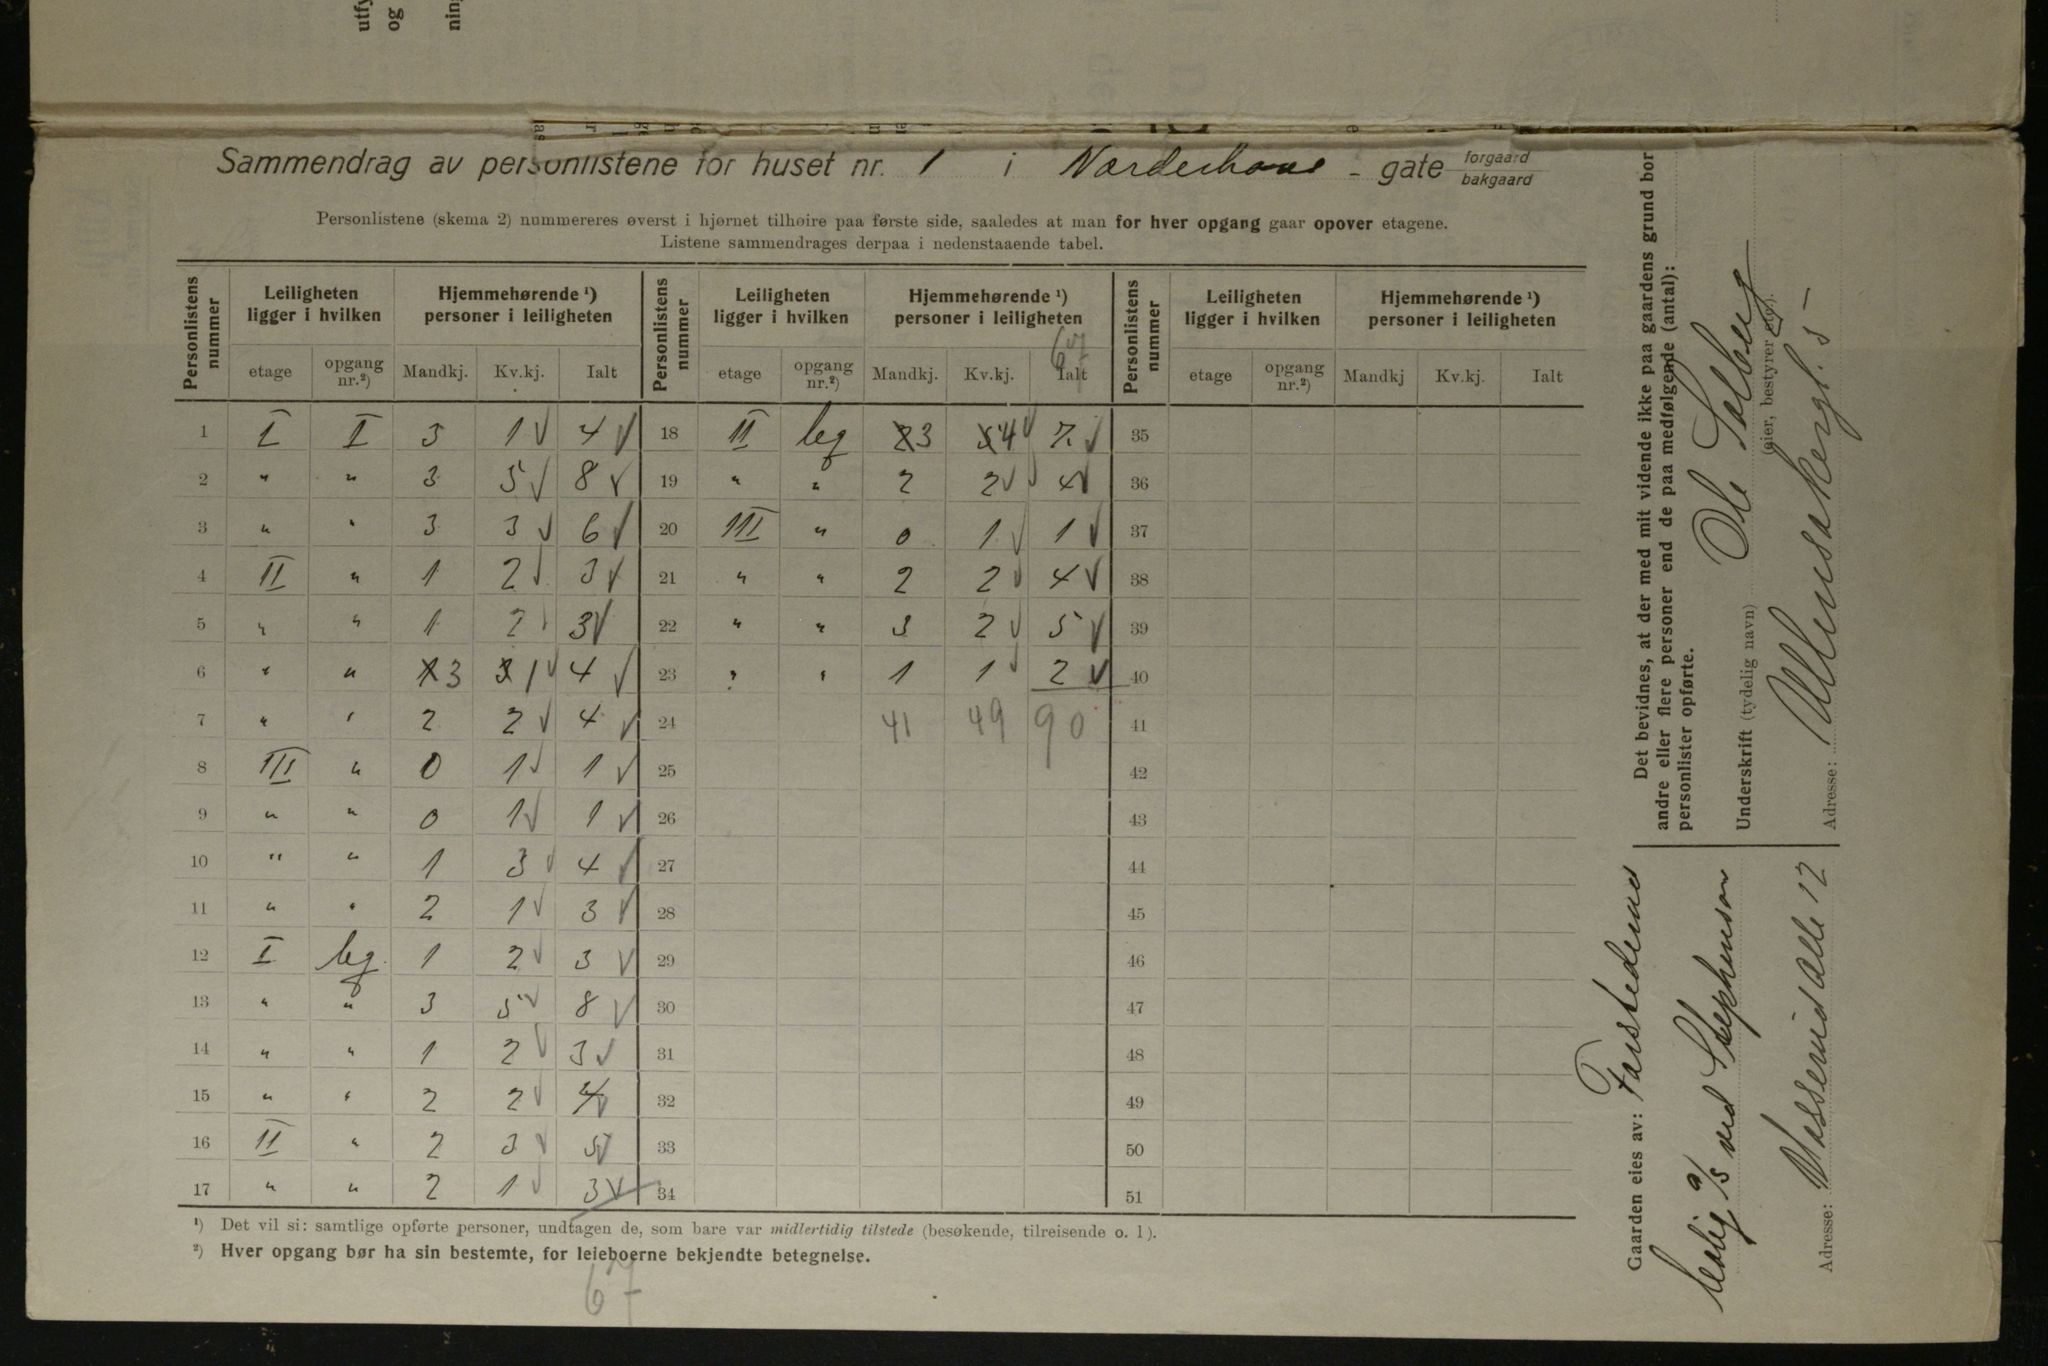 Sammendrag av personlistene for huset nr. 1 i Norderhovs - gate forgaard bakgaard
Personlistene (skema 2) nummereres øverst i hjørnet tilhøire paa første side, saaledes at man for hver opgang gaar opover etagene.
Listene sammendrages derpaa i nedenstaaende tabel.
Personlistens nummer | Leiligheten ligger i hvilken | Hjemmehørende ¹) personer i leiligheten | Personlistens nummer | Leiligheten ligger i hvilken | Hjemmehørende ¹) personer i leiligheten | Personlistens nummer | Leiligheten ligger i hvilken | Hjemmehørende ¹) personer i leiligheten
67
etage | opgang nr.²) | Mandkj. | Kv.kj. | Ialt | etage | opgang nr.²) | Mandkj. | Kv.kj. | Ialt | etage | opgang nr.²) | Mandkj | Kv.kj. | Ialt
1 I I 3 1 √ 4 √ 18 II bg 2 3 3 4 √ 7. √ 35
2 " " 3 5 √ 8 √ 19 " " 2 2 √ 4 √ 36
3 " " 3 3 √ 6 √ 20 III " 0 1 √ 1 √ 37
4 II " 1 2 √ 3 √ 21 " " 2 2 √ 4 √ 38
5 " " 1 2 √ 3 √ 22 " " 3 2 √ 5 √ 39
6 " " 1 3 3 1 √ 4 √ 23 " " 1 1 √ 2 √ 40
7 " " 2 2 √ 4 √ 24 41 49 90 41
8 III " 0 1 √ 1 √ 25 42
9 " " 0 1 √ 1 √ 26 43
10 " " 1 3 √ 4 √ 27 44
11 " " 2 1 √ 3 √ 28 45
12 I bg. 1 2 √ 3 √ 29 46
13 " " 3 5 √ 8 √ 30 47
14 " " 1 2 √ 3 √ 31 48
15 " " 2 2 √ 4 √ 32 49
16 II " 2 3 √ 5 √ 33 50
17 " " 2 1 √ 3 √ 34 51
¹) Det vil si: samtlige opførte personer, undtagen de, som bare var midlertidig tilstede (besøkende, tilreisende o. l).
²) Hver opgang bør ha sin bestemte, for leieboerne bekjendte betegnelse.
67
Det bevidnes, at der med mit vidende ikke paa gaardens grund bor
andre eller flere personer end de paa medfølgende (antal):
personlister opførte.
Underskrift (tydelig navn) Ole Solberg
eier, bestyrer etc).
Adresse: Ullensakergt. 5
Gaarden eies av: Farstedernes
bolig a/s ved Stephenson
Adresse: Wesselsalle 12